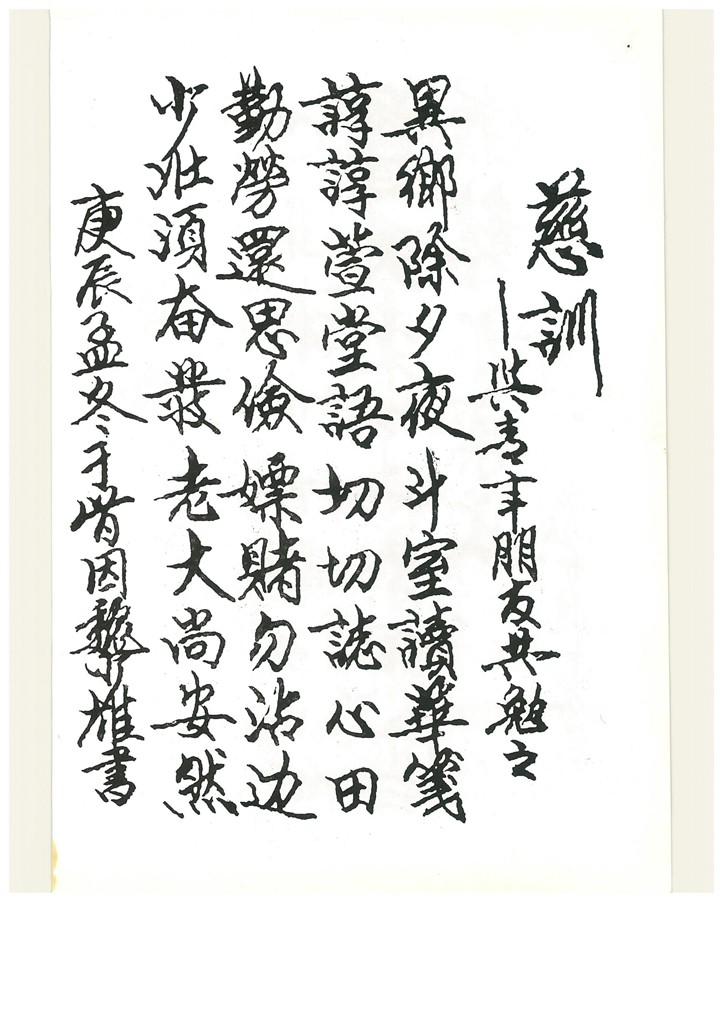 慈訓
—与青年朋友共勉之
異鄉除夕夜斗室讀華箋
諄諄萱堂語切切誌心田
勤勞還思儉嫖賭勿沾边
少壯須奋發老大尚安然
庚辰孟冬于
因
雄書